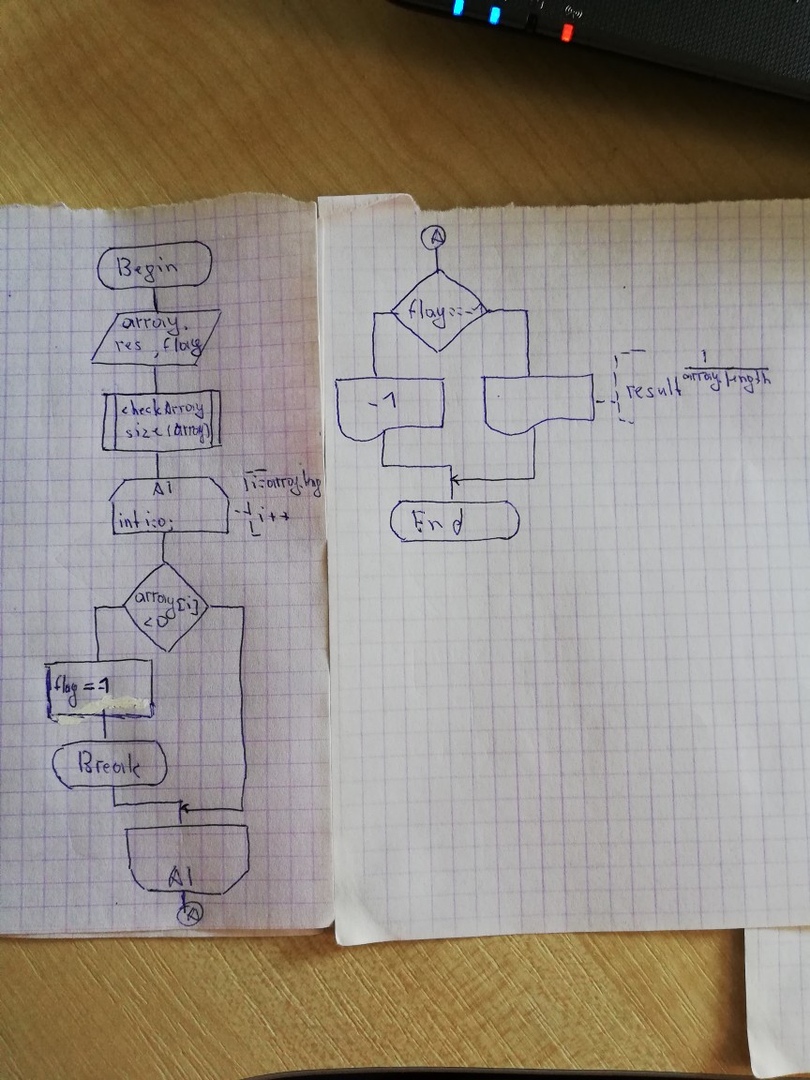 Begin
array.
res , flag
checkArray
size(array)
A1
int i=0;
i=array.lng
i++
array[i]
<0
flag = -1
Break
A1
A
A
flag==-1
-1
result
1
array.length
End